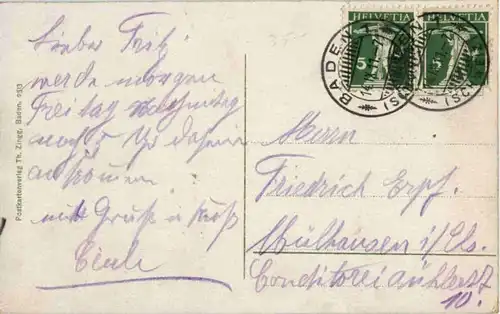 Lieber Fritz!
werde morgen
Freitag nachmittag
nach 5 Uhr daheim
ankommen.
mit Gruß u Kuß
Postkartenverlag Th. Zingg, Baden.
HELVETIA
HELVETIA
5
5
BADEN
Herrn
Friedrich Erpf.
Mülhausen i/Els.
Conditorei
10.